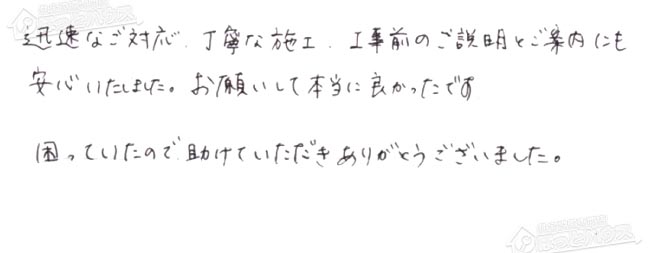 迅速なご対応、丁寧な施工、工事前のご説明とご案内にも
安心いたしました。お願いして本当に良かったです
困っていたので助けていただきありがとうございました。